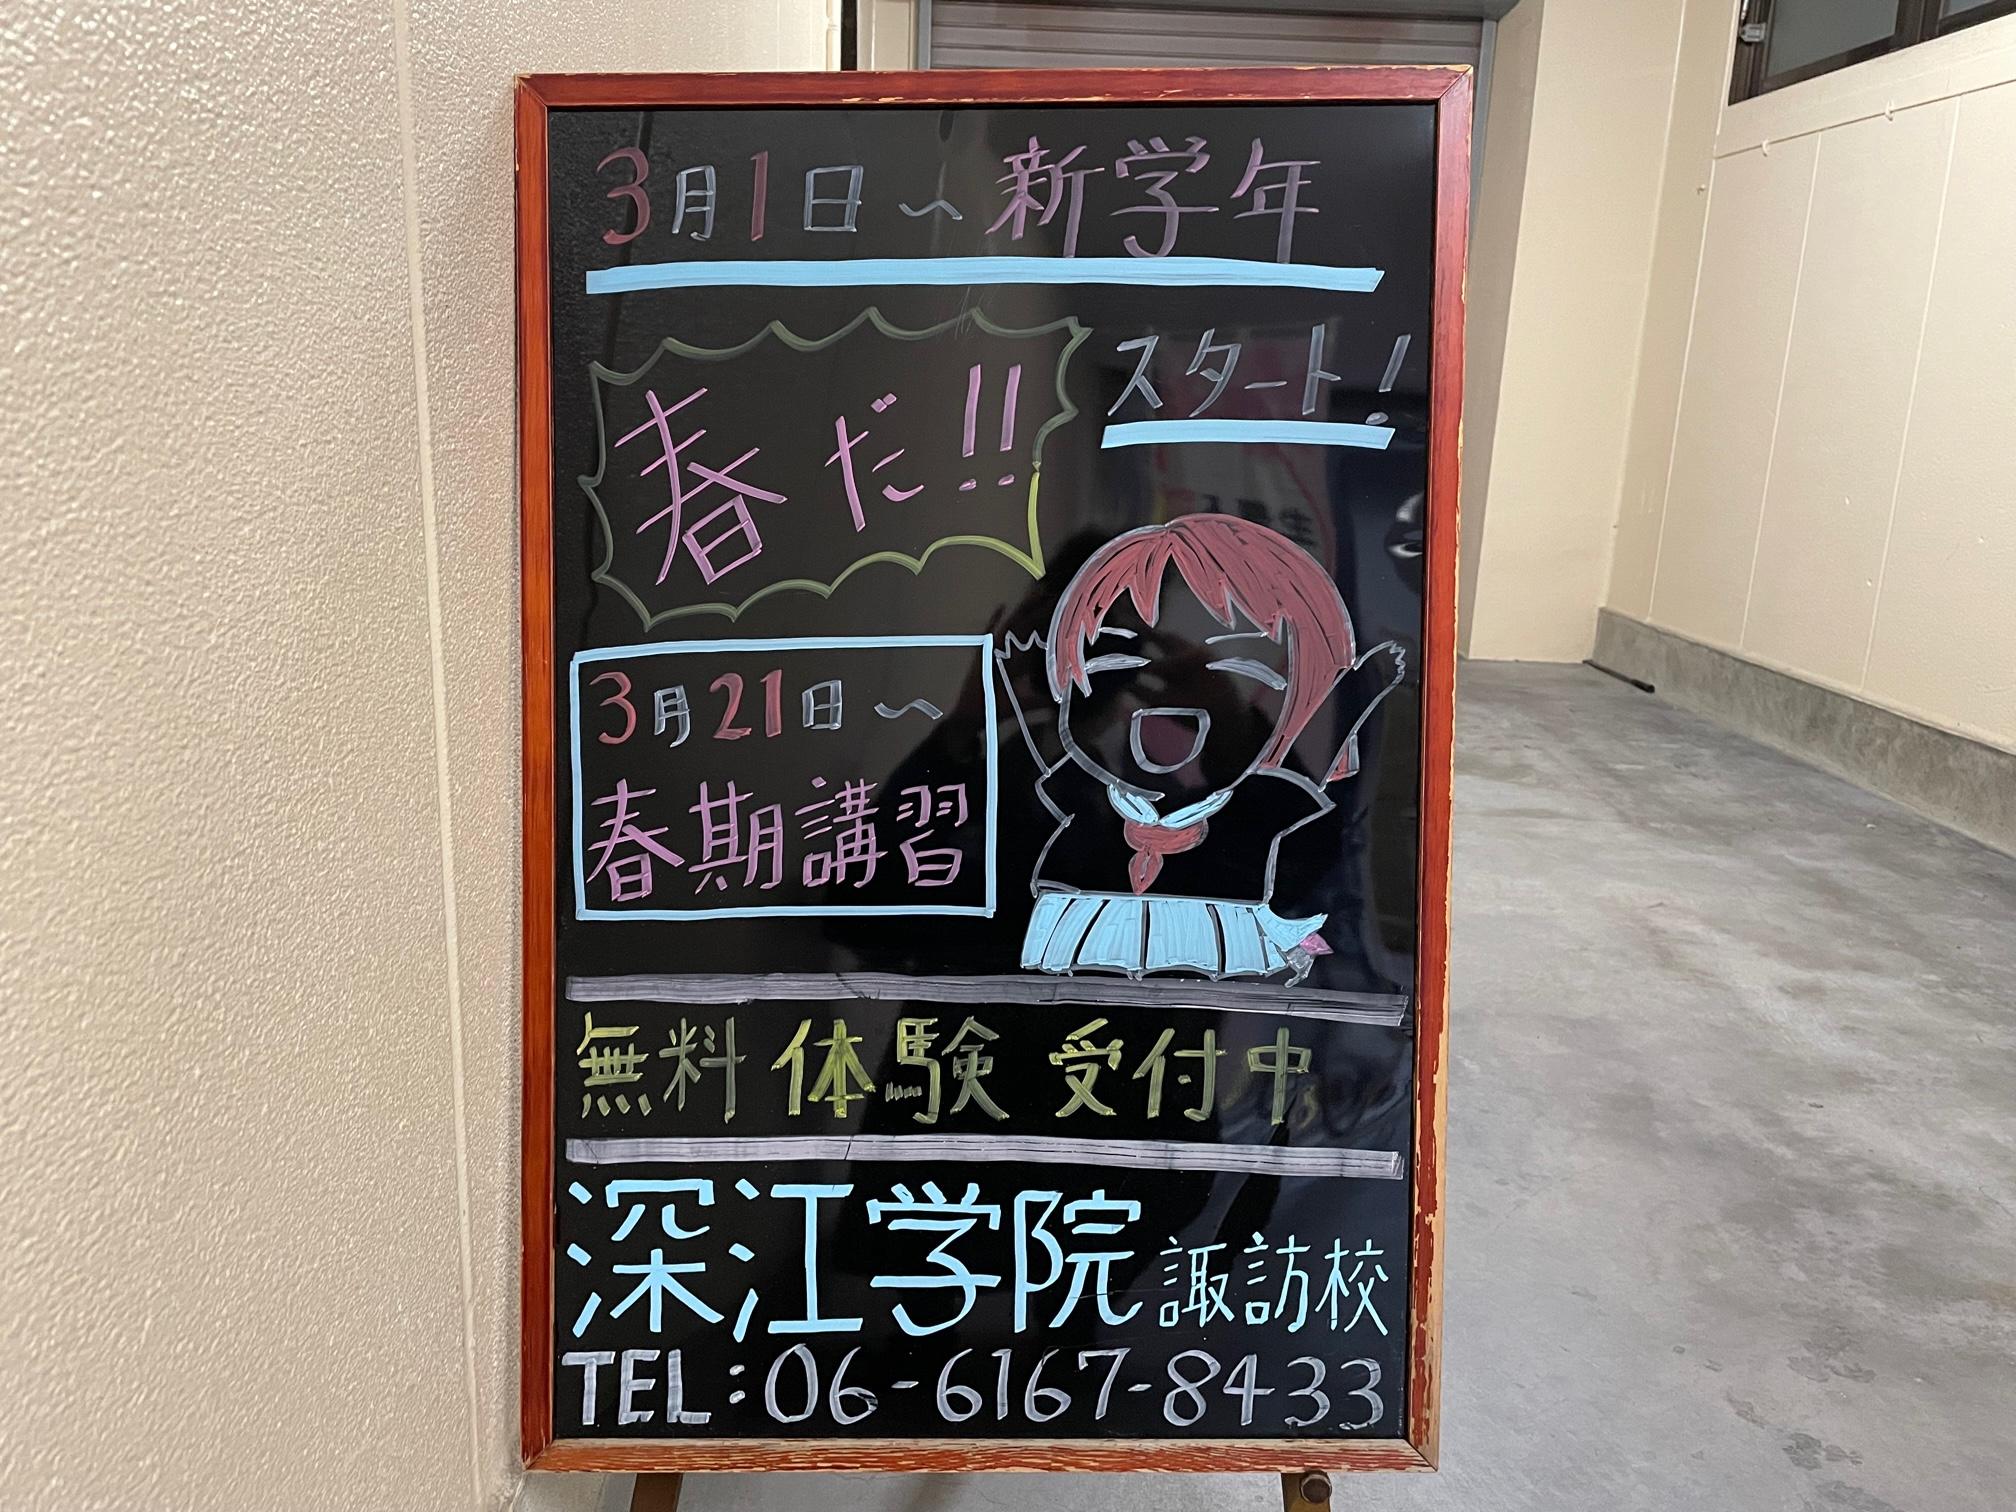 3月1日～新学年
スタート!
春だ!!
3月21日～
春期講習
無料体験 受付中
深江学院 諏訪校
TEL:06-6167-8433